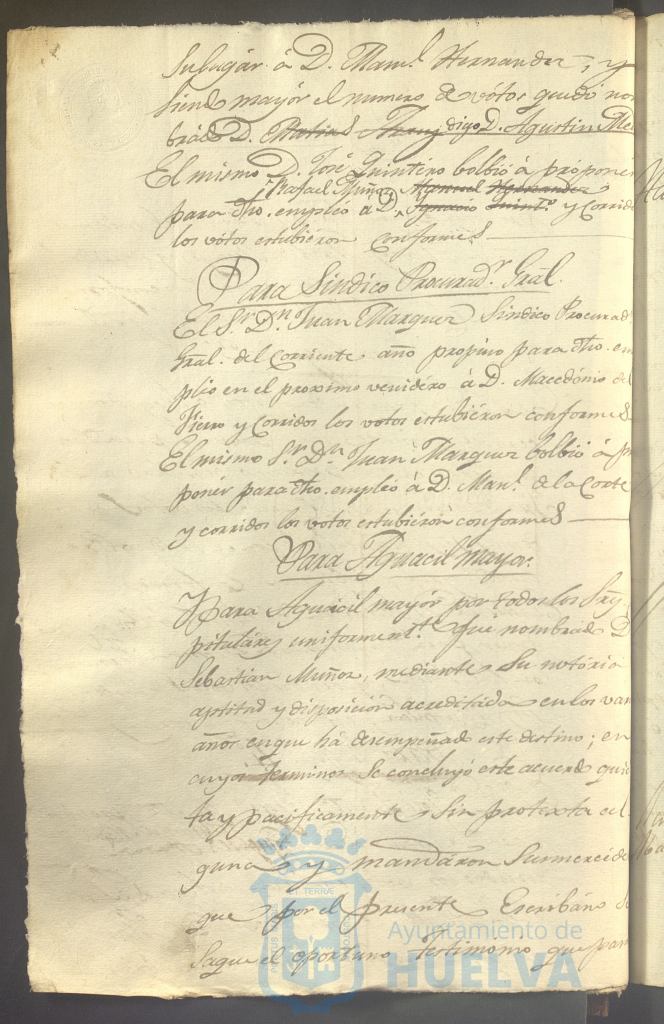 Su lugár á D. Man.l Hernandez, y
siendo mayór el numero de vótos quedó nom
brado D. Matias digo D. Agustin Me
El mismo D. José Quintero bolbió á proponer
Rafael Muñoz Manuel Hernandez
para dho. empleó á D. Ignacio Quint.o y Corrido
los vótos estubiéron conformes
Para Sindico Procurad.r Gral.
El S.r D.n Juan Marquez Sindico Procurad.r
Gral. del Corriente año propuso para dho. em
pléo en el proximo venidéro á D. Macedónio del
Fierro y Corridos los votos estubiéron conformes
El mismo S.r D.n Juan Marquez bolbió á pro
ponér para dho. empleó á D. Man.l de la Corte
y corridos los votos estubiéron conformes
Para Aguacil mayor.
Para Aguacil mayór por todos los Sres
pitulares uniformem.te fué nombrado D.
Sebastian Muñoz, mediante su notória
aptitud y disposición acreditada en los var
años en que há desempeñado este destino; en
cuyos terminos se concluyó este acuerdo quie
ta y pacificamente sin protexta al
guna y mandáron Sus mercedes
que por el presente Escribano se
saque el oportuno Testimonio que par
PORTUS ET TERRÆ CUSTODIA
Ayuntamiento de
HUELVA